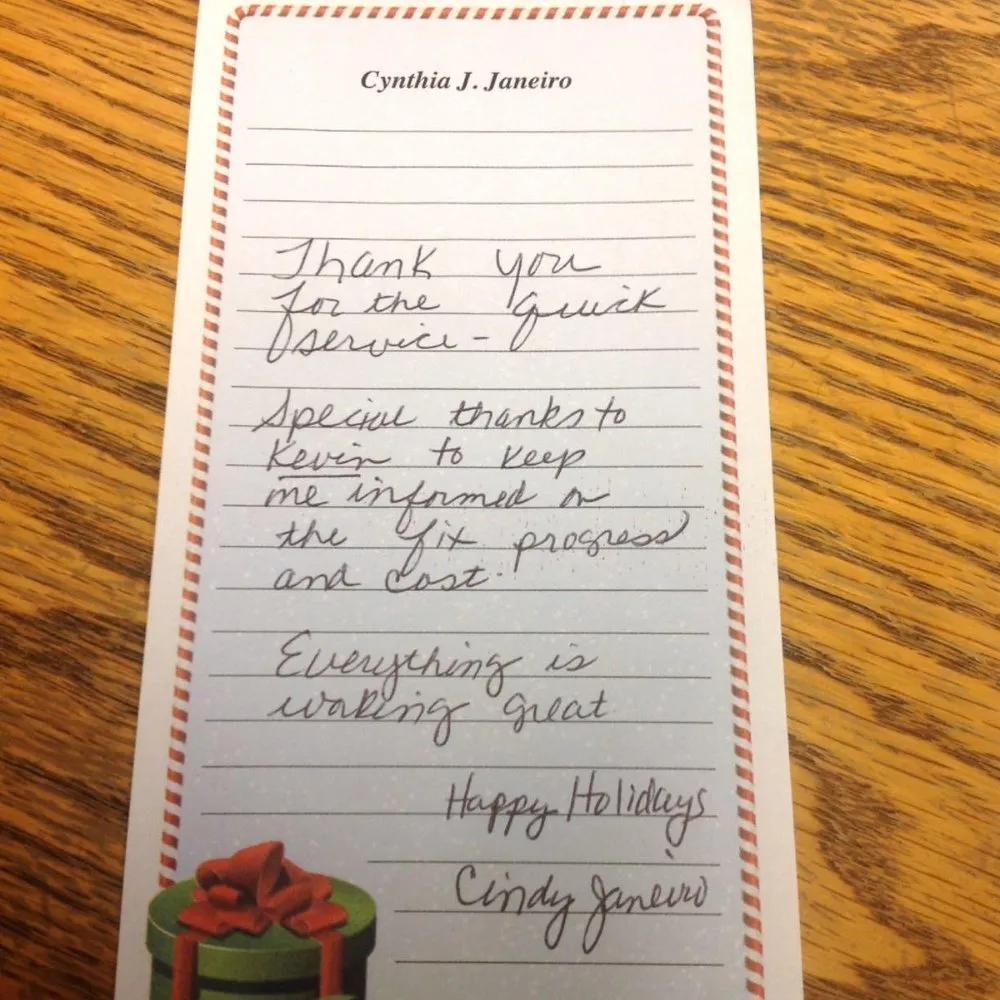 Cynthia J. Janeiro
Thank you
for the quick
service -
Special thanks to
Kevin to keep
me informed on
the fix progress
and cost.
Everything is
working great
Happy Holidays
Cindy Janeiro